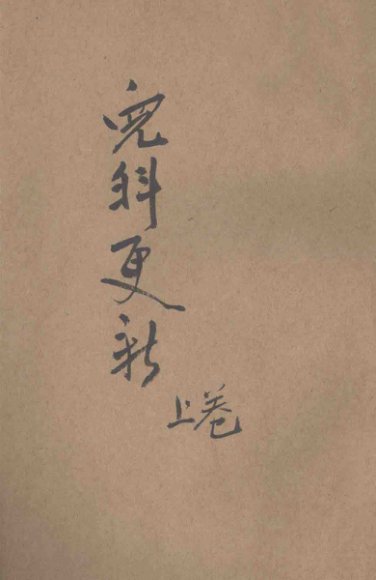 兒科更新
上卷